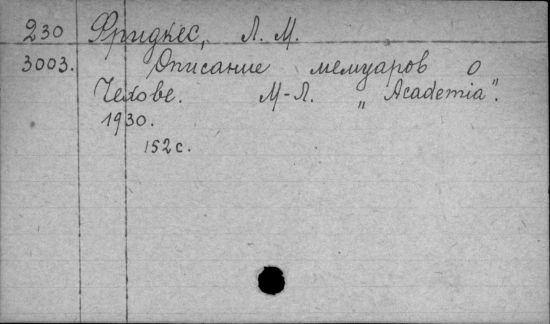 230 Фридкес, Л. М.
3003. Описание мемуаров о
Чехове. М-Л. „Academia".
1930.
152 с.